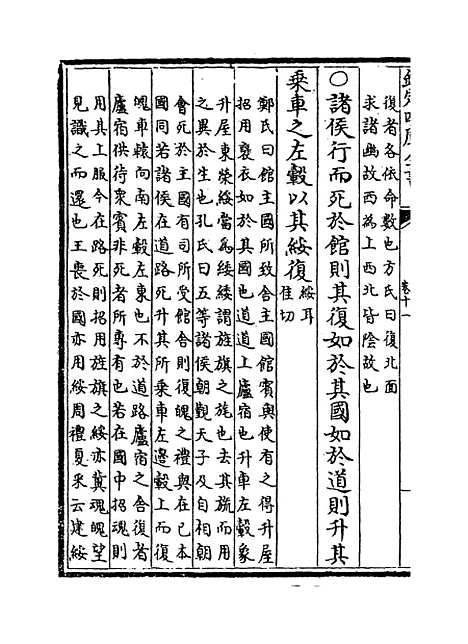 欽定四庫全書
卷十一
復者各依命數也方氏曰復北面
求諸幽故西為上西北皆陰故也
○諸侯行而死於館則其復如於其國如於道則升其
乗車之左轂以其綏復綏耳
佳切
鄭氏曰館主國所致舍主國館賓與使有之得升屋
招用褒衣如於其國也道道上廬宿也升車左轂象
升屋東榮綏當為緌緌謂旌旗之旄也去其旒而用
之異於生也孔氏曰五等諸侯朝覲天子及自相朝
會死於主國有司所受館舍則復魄之禮與在已本
國同若諸侯在道路死升其所乗車左邊轂上而復
魄車轅向南左轂左東也不於道路廬宿之舍復者
廬宿供待衆賓非死者所專有也若在國中招魂則
用其上服今在路死則招用旌旗之綏亦冀魂魄望
見識之而還也王喪於國亦用綏周禮夏采云建綏